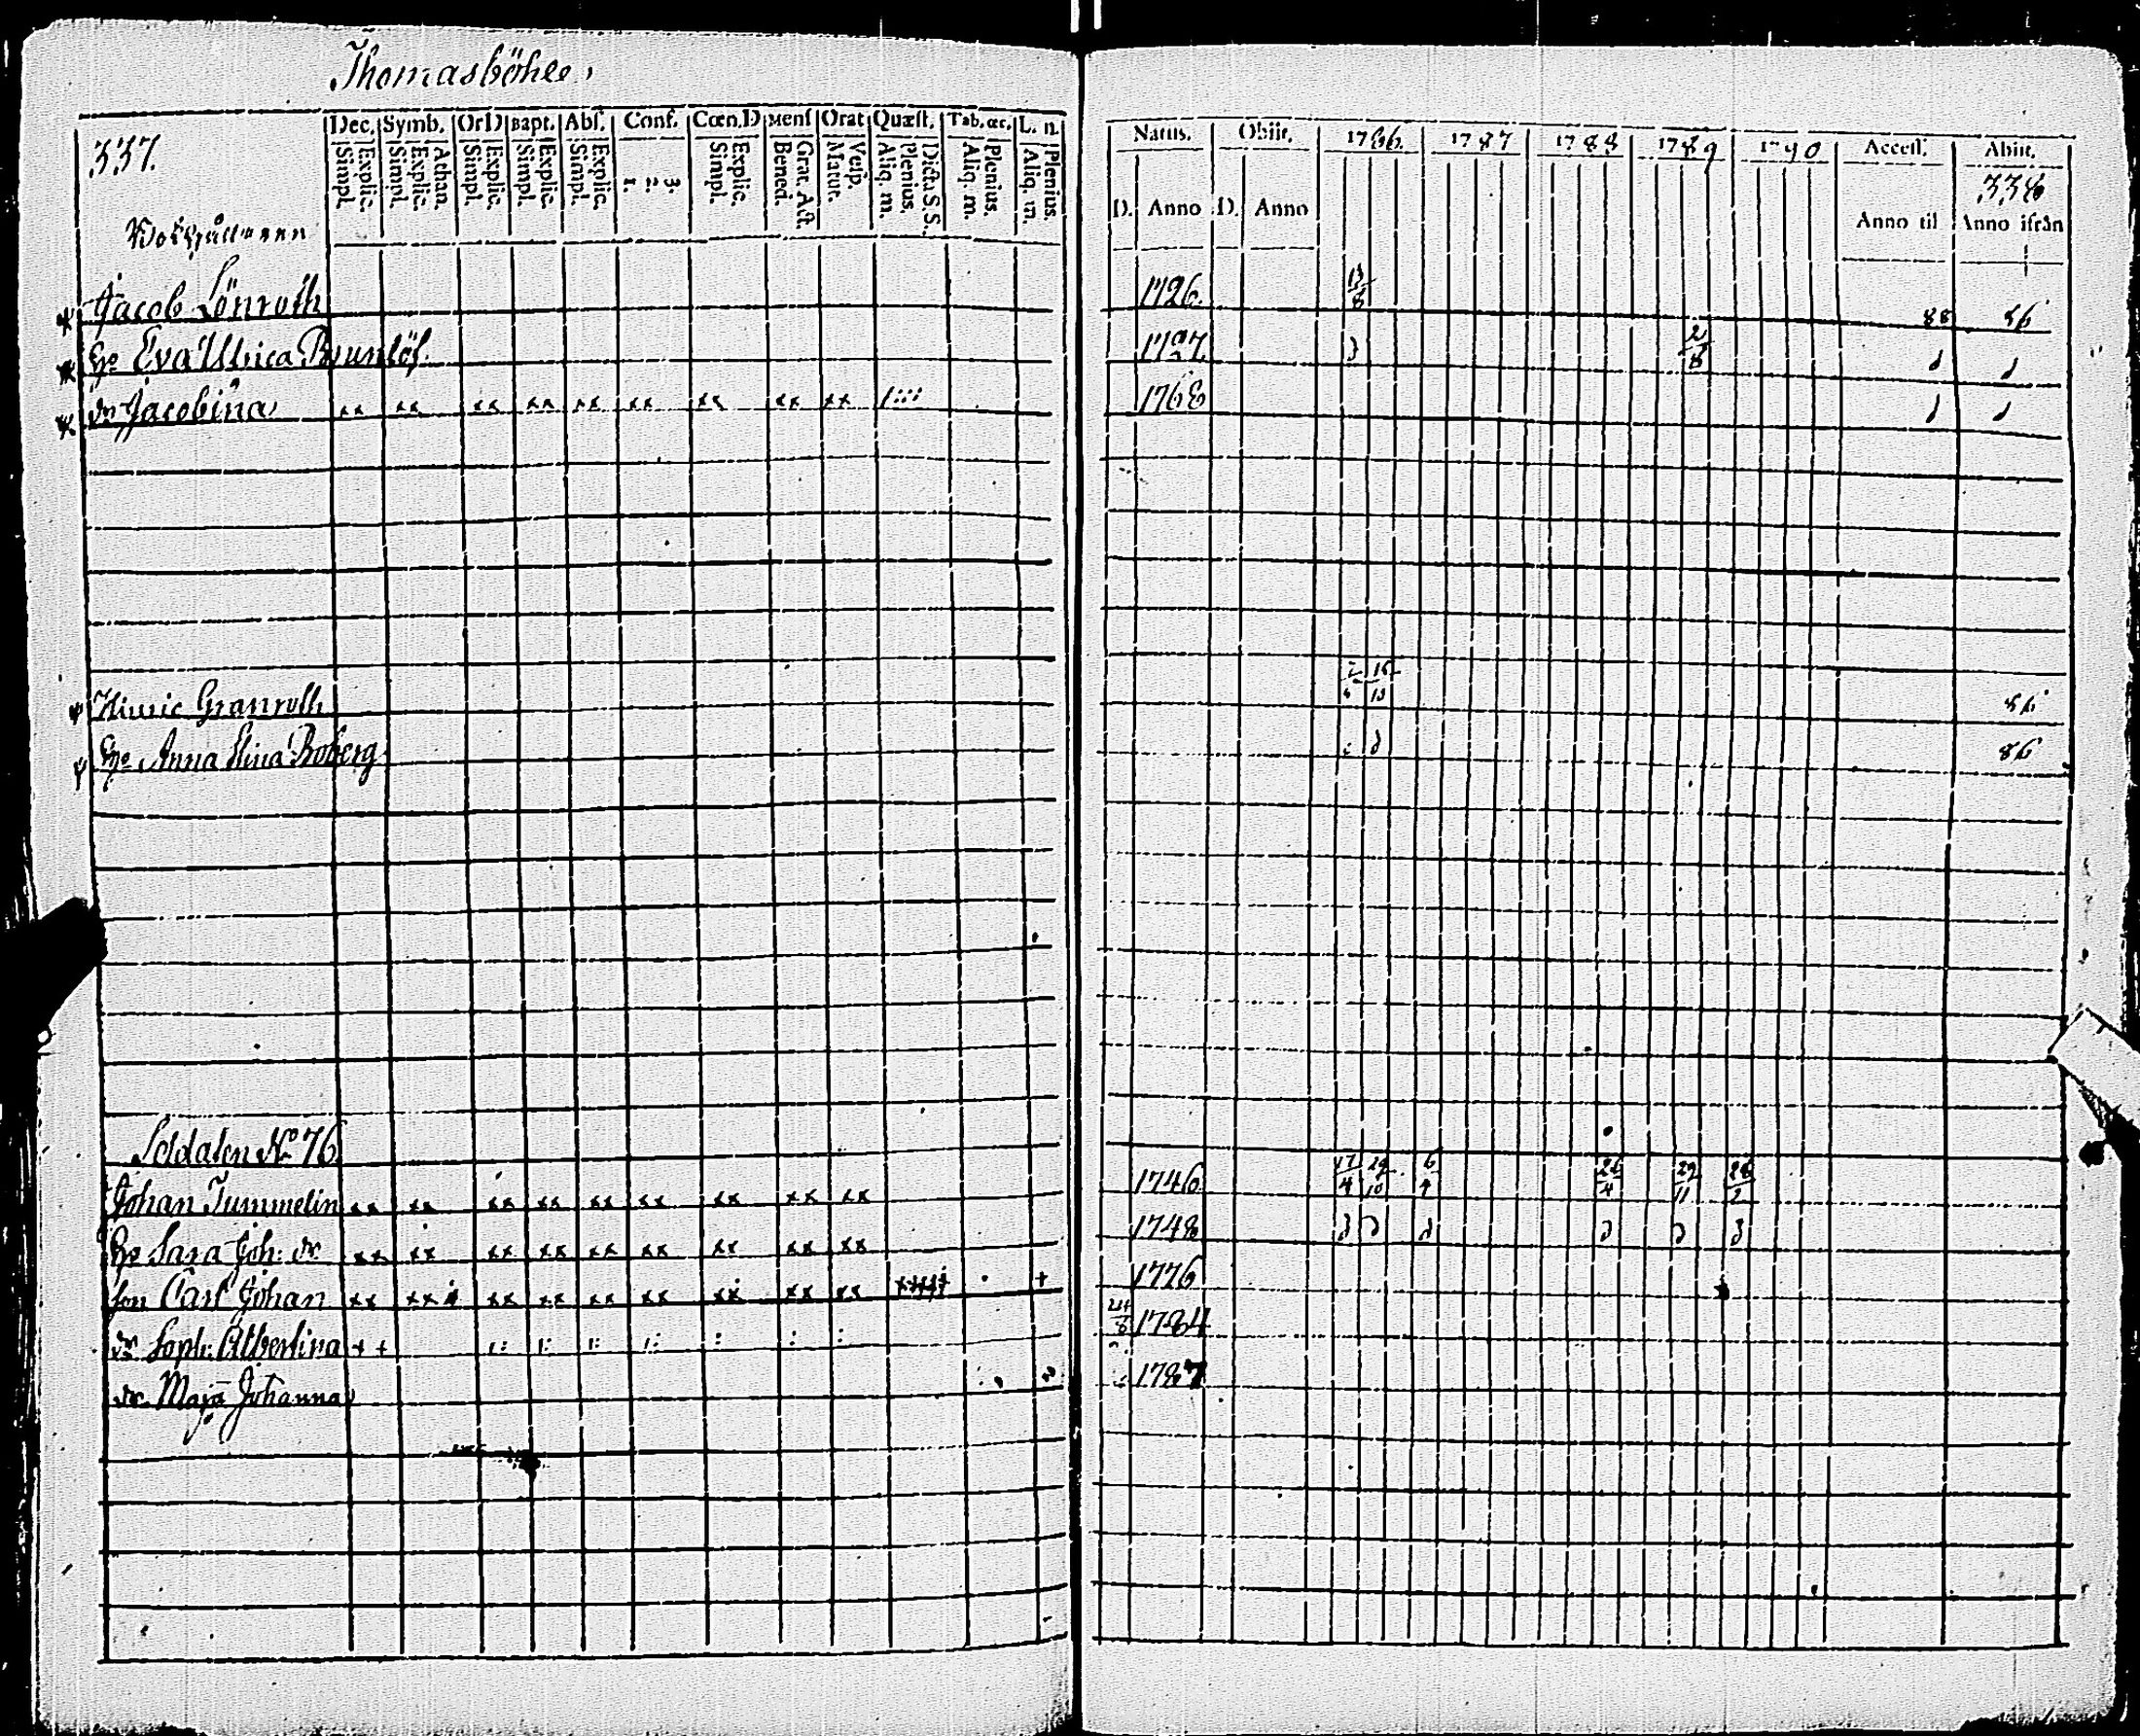 Thomasböhle,
337.
Dec. Symb. Or D Bapt. Abs. Conf. Cœn. D Mens Orat Quæst. Tab. œc. L. n.
Explic. Simpl. Athan. Explic. Simpl. Explic. Simpl. Explic. Simpl. Explic. Simpl. 3. 2. 1. Explic. Simpl. Grat. Act. Bened. Vesp. Matut. Dicta S.S. Plenius. Aliq. m. Plenius. Aliq. m. Plenius. Aliq. m.
Natus. Obiit. 1786. 1787 1788 1789 1790 Access. Abiit.
338
D. Anno D. Anno Anno til Anno ifrån
Jacob Lönroth 1726. 13/8 88 86
Hu Eva Ulrica Brunlöf 1727 2/8
dr Jacobina xx xx xx xx xx xx xx xx xx 1768
Hinric Granroth 86
Hu Anna Stina Boberg 86
Soldaten No 76
Johan Tummelin xx xx xx xx xx xx xx xx xx 1746 17/4 29/10 29/11
Hu Sara Joh: dr xx xx xx xx xx xx xx xx xx 1748
son Carl Johan xx xx xx xx xx xx xx xx xx 1776
dr Soph: Albertina ++ 24/8 1784
dr Maja Johanna 1787